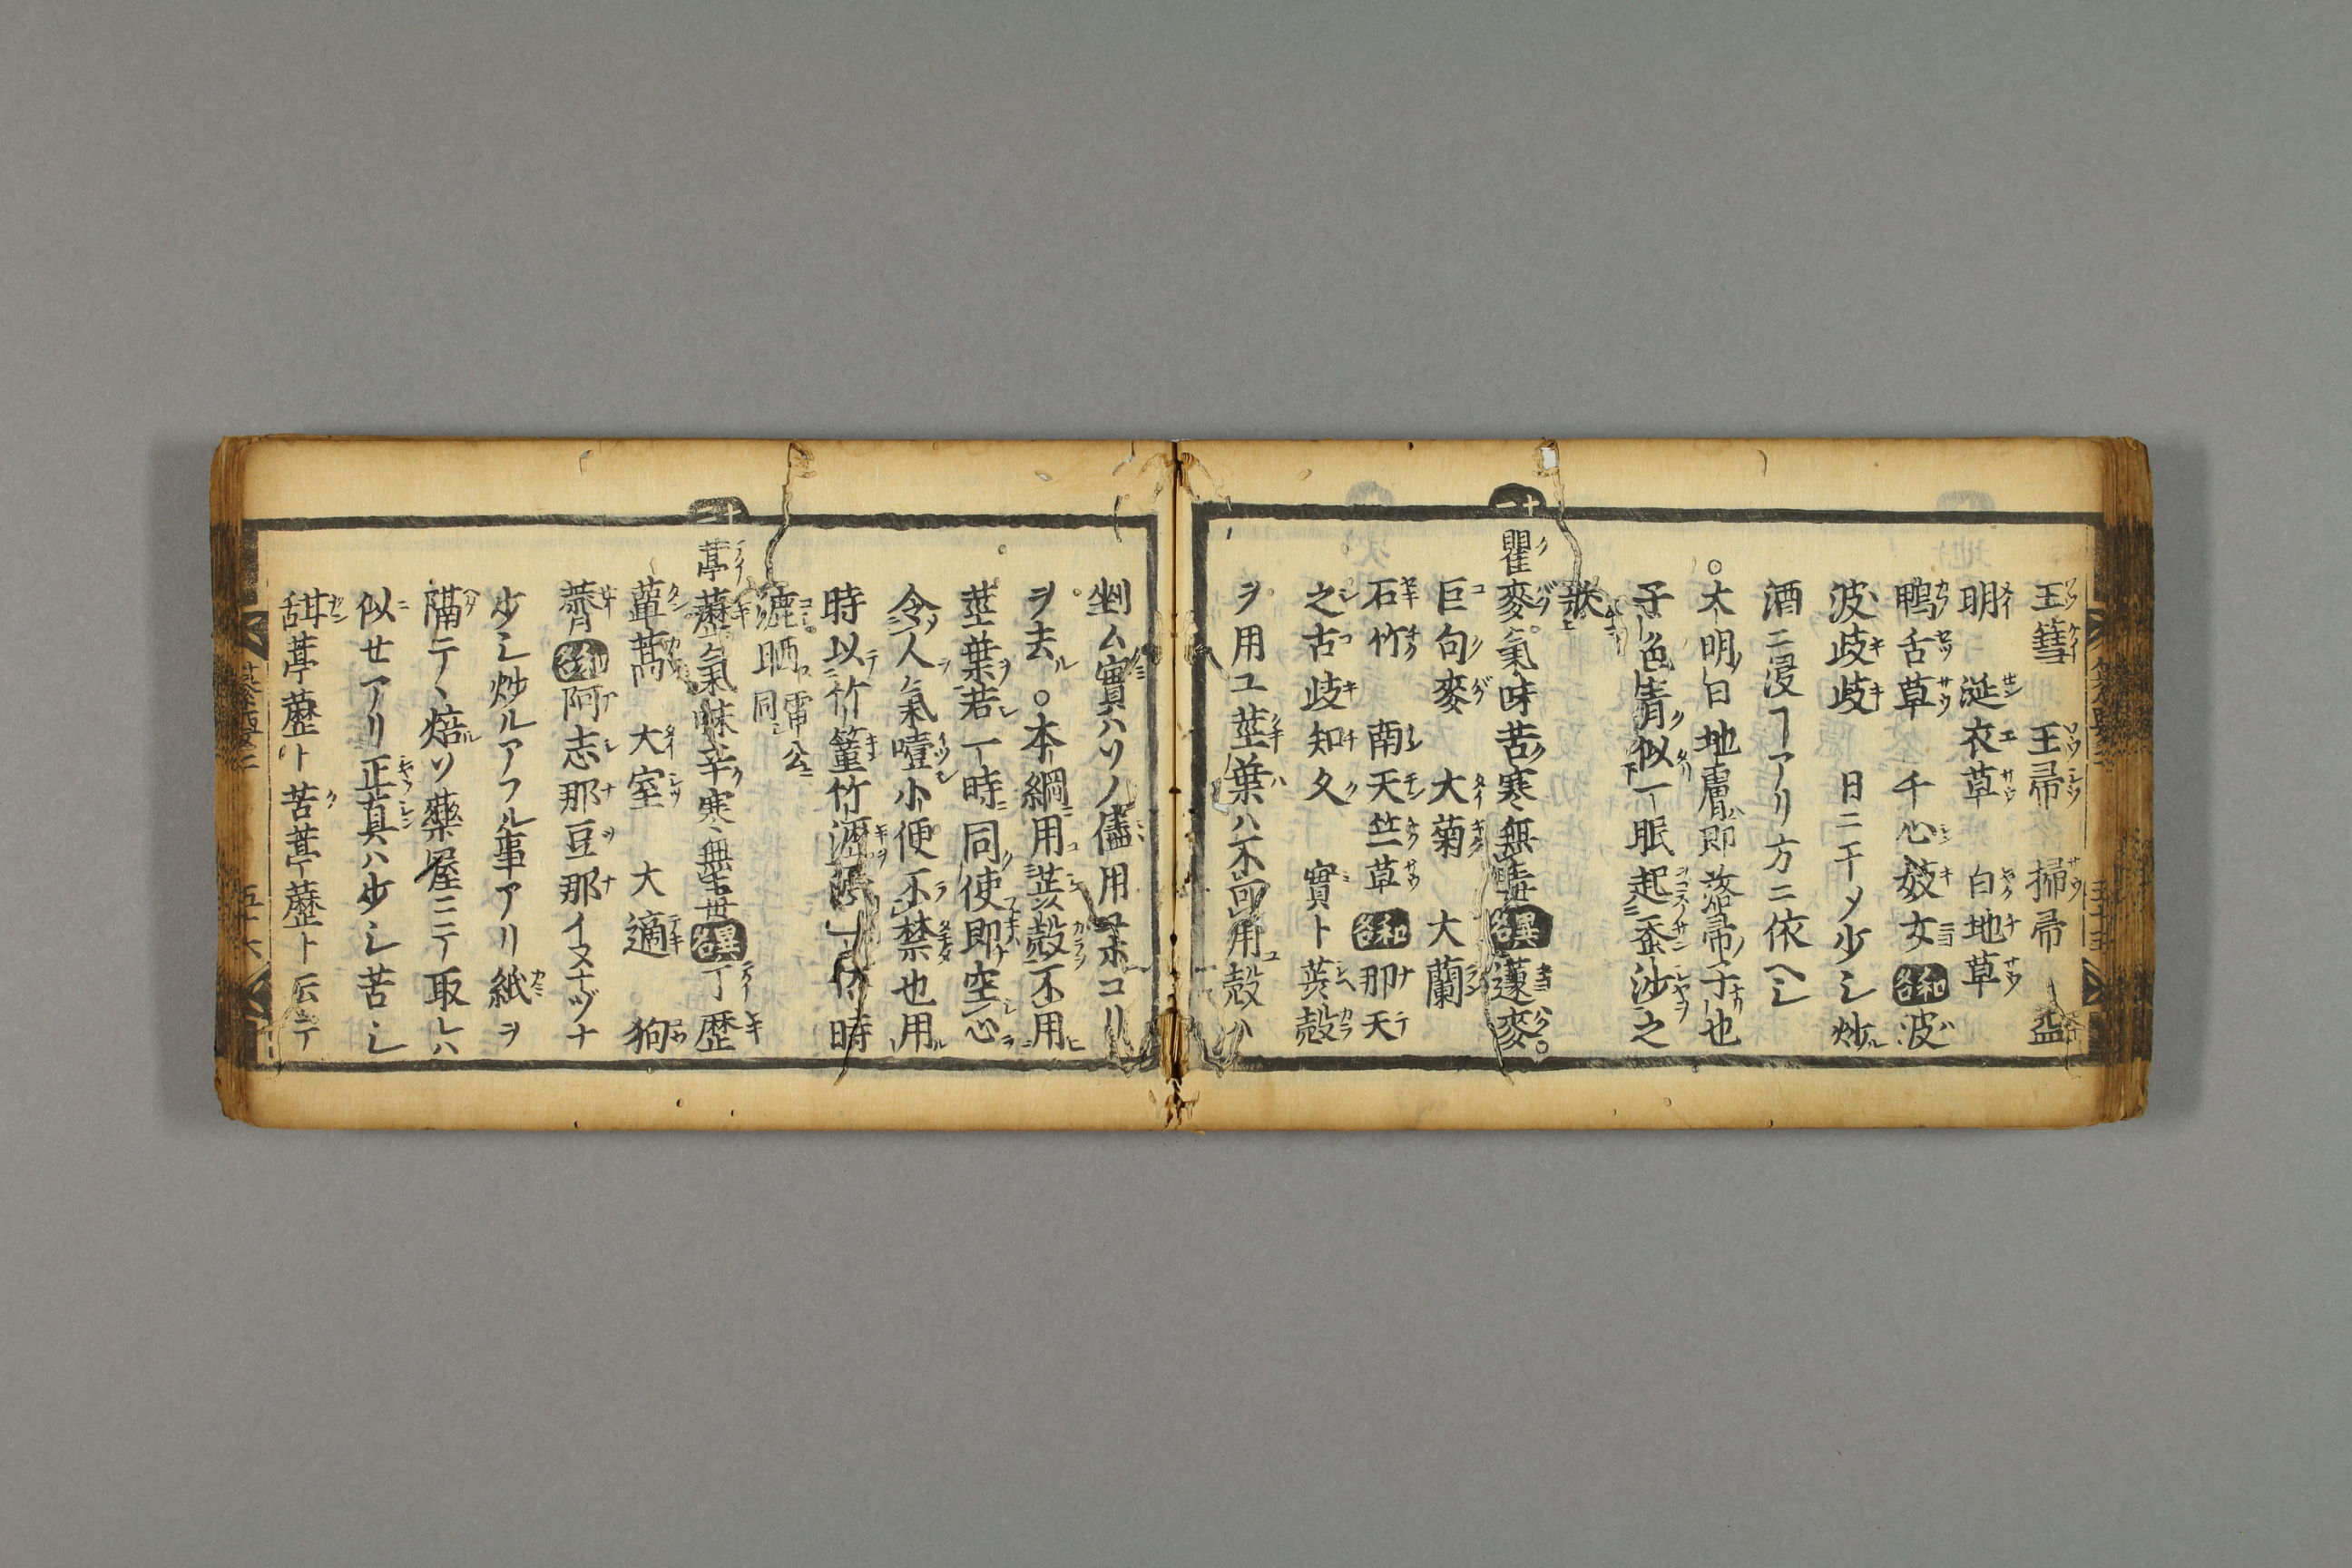 王篲 王帚 掃帚 益
明 涎衣草 白地草
鴨舌草 千心妓女 和名 波波
波岐岐 日ニ干メ少シ炒ル
酒ニ浸ヿアリ方ニ依ヘシ
○大明曰地膚即落帚子也
子色青似一眠起蚕沙之
狀
十一
瞿麥 氣味苦寒無毒 異名 蘧麥○
巨句麥 大菊 大蘭
石竹 南天竺草 和名 那天
之古 岐知久 實ト蕋殼
ヲ用ユ茎葉ハ不可用殼ハ
剉ム實ハソノ儘用ユホコリ
ヲ去 ○本綱用蕋殼不用
茎葉若一時同使即空心
令人氣噎小便不禁也用
時以竹簟竹瀝
漉晒 雷公同
十二
葶藶 氣味辛寒無毒 異名 丁歴
蕇蒿 大室 大適 狗
薺 和名 阿志那豆那イヌナヅナ
少シ炒ルアフル事アリ紙ヲ
隔テ丶焙ソ藥屋ニテ取レハ
似セアリ正真ハ少シ苦シ
甜葶藶ト苦葶藶ト云テ
五十六